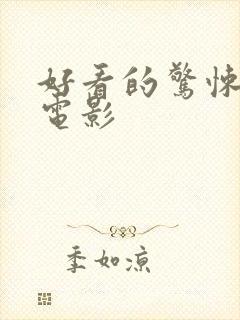 好看的驚悚
電影
季如涼